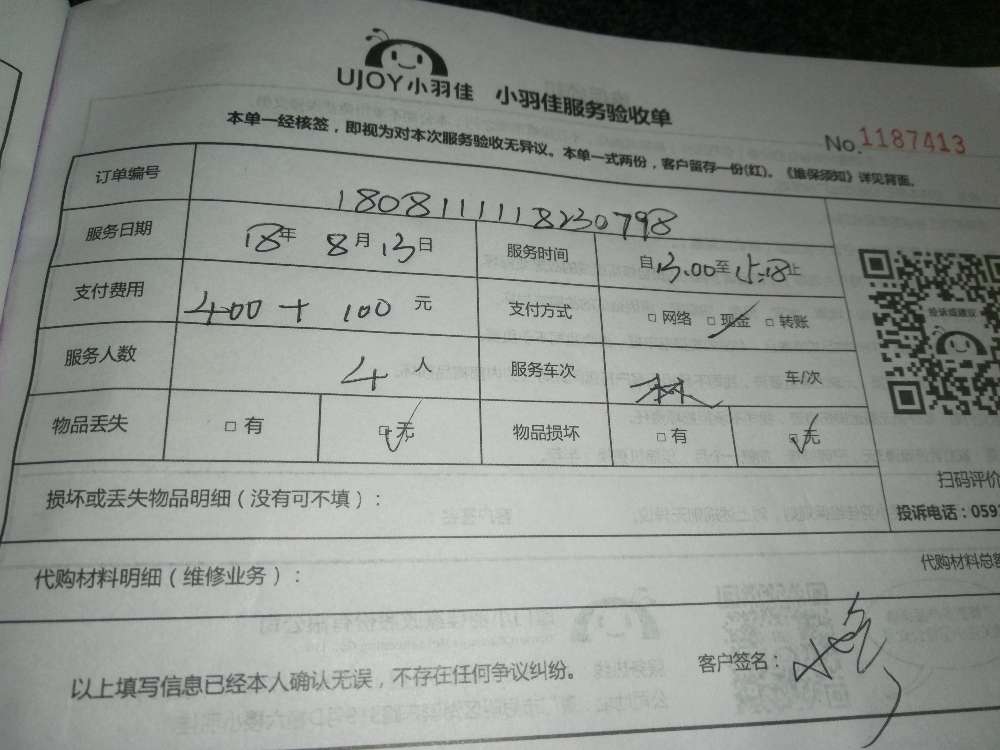 UJOY小羽佳 小羽佳服务验收单
No.1187413
本单一经核签，即视为对本次服务验收无异议。本单一式两份，客户留存一份(红)。《维保须知》详见背面。
订单编号 18081111118230798
服务日期 18年 8月 13日 服务时间 自13.00至15.18止
支付费用 400 + 100 元 支付方式 □ 网络 □ 现金 □ 转账
投诉或建议
服务人数 4 人 服务车次 车/次
物品丢失 □ 有 □ 无 物品损坏 □ 有 □ 无
扫码评价
损坏或丢失物品明细（没有可不填）：
投诉电话：059
代购材料明细（维修业务）： 代购材料总
以上填写信息已经本人确认无误，不存在任何争议纠纷。 客户签名：